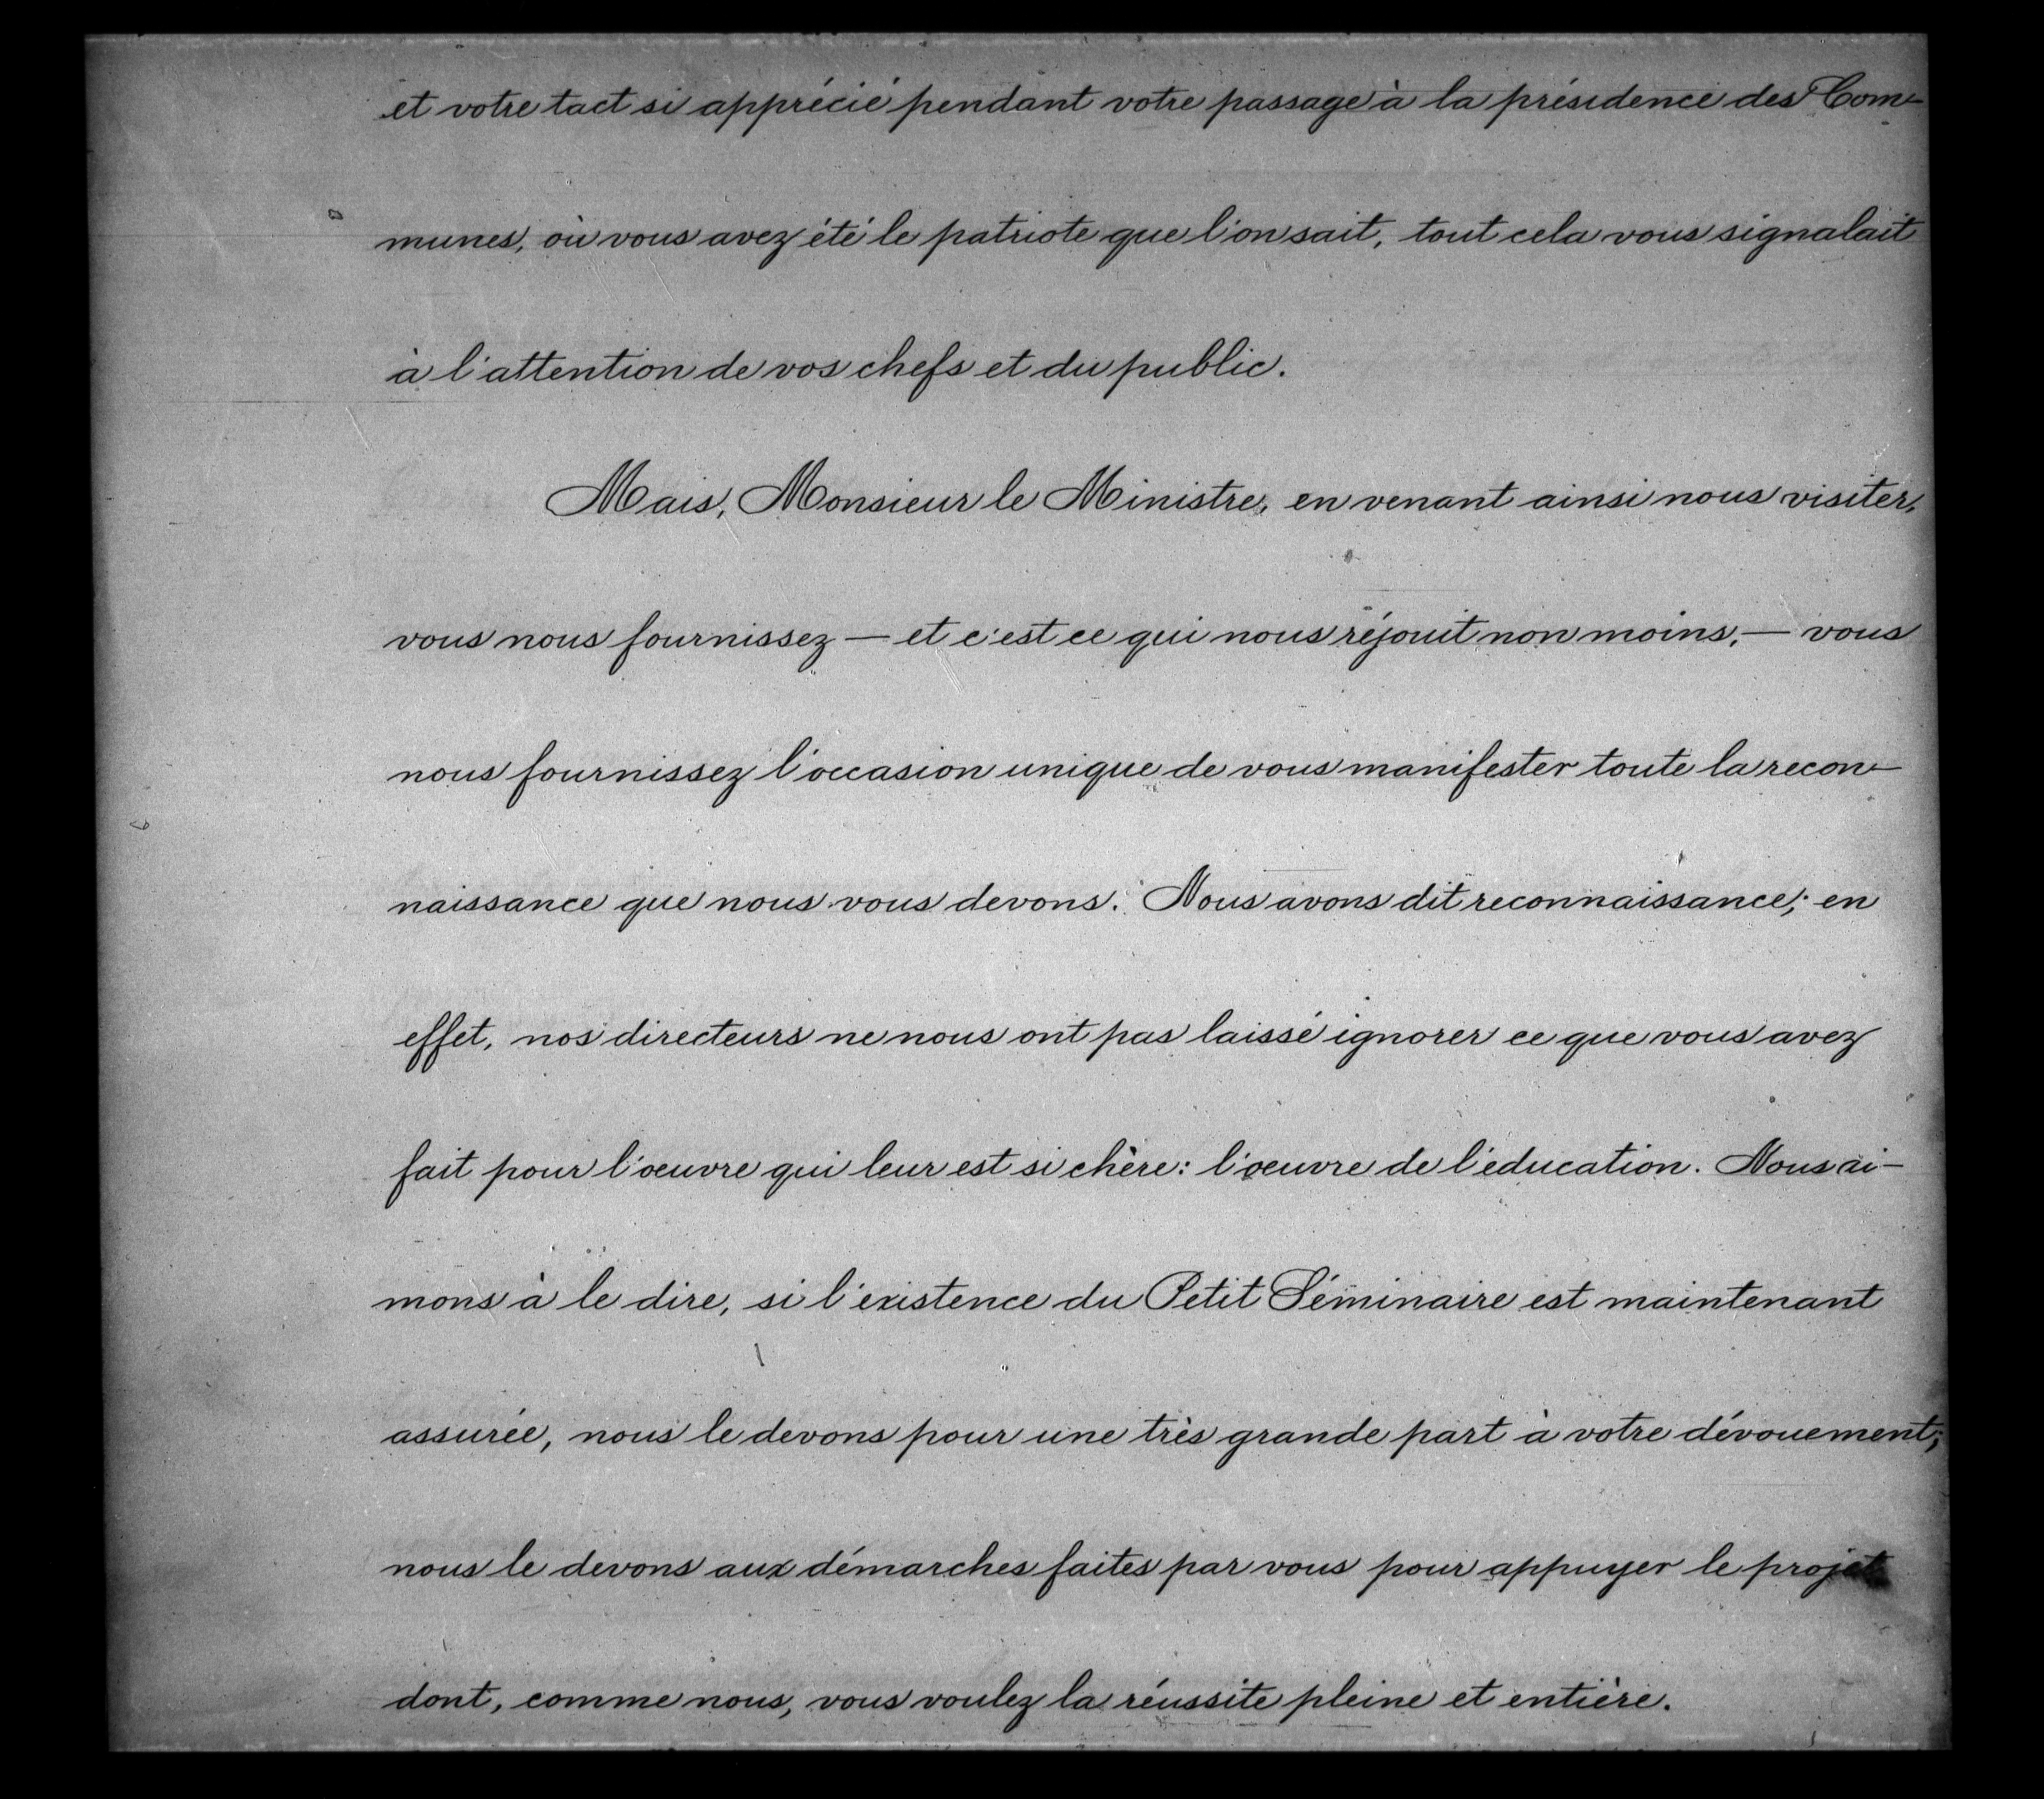 et votre tact si apprécié pendant votre passage à la présidence des Com-
munes, où vous avez été le patriote que l'on sait, tout cela vous signalait
à l'attention de vos chefs et du public.
Mais, Monsieur le Ministre, en venant ainsi nous visiter,
vous nous fournissez — et c'est ce qui nous réjouit non moins, — vous
nous fournissez l'occasion unique de vous manifester toute la recon-
naissance que nous vous devons. Nous avons dit reconnaissance; en
effet, nos directeurs ne nous ont pas laissé ignorer ce que vous avez
fait pour l'oeuvre qui leur est si chère: l'oeuvre de l'éducation. Nous ai-
mons à le dire, si l'existence du Petit Séminaire est maintenant
assurée, nous le devons pour une très grande part à votre dévouement;
nous le devons aux démarches faites par vous pour appuyer le projet
dont, comme nous, vous voulez la réussite pleine et entière.